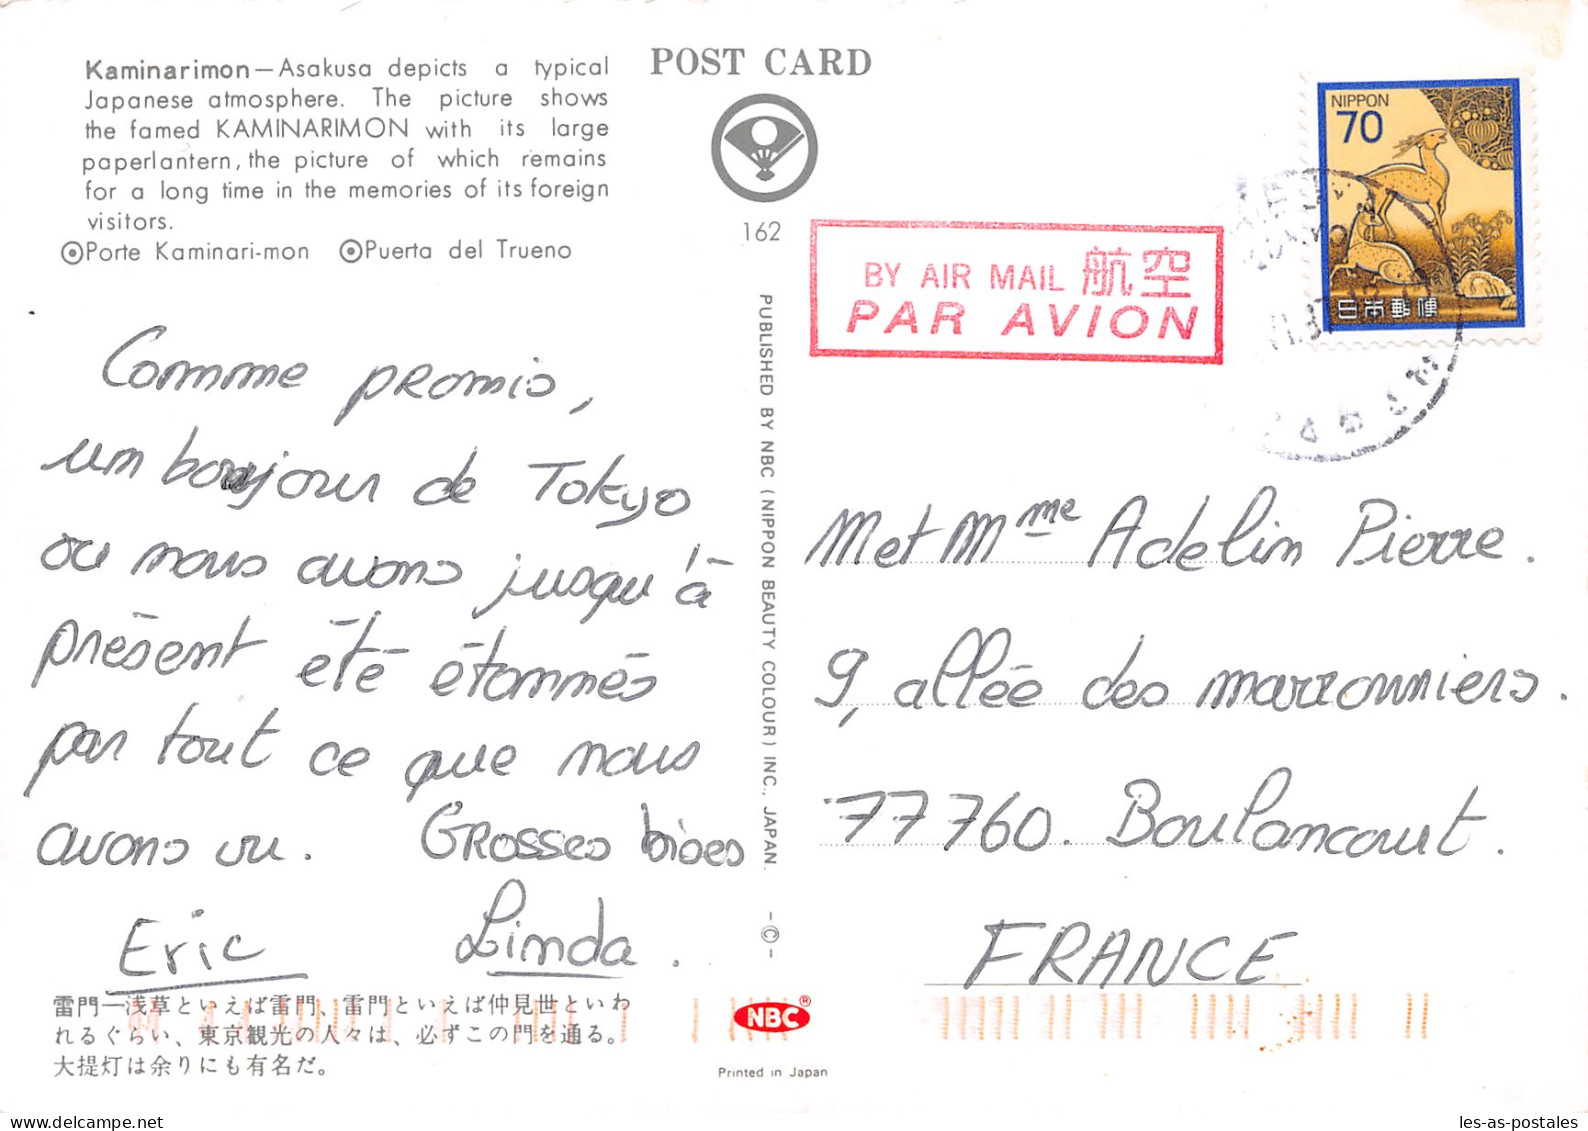 Kaminarimon—Asakusa depicts a typical
Japanese atmosphere. The picture shows
the famed KAMINARIMON with its large
paperlantern, the picture of which remains
for a long time in the memories of its foreign
visitors.
Porte Kaminari-mon Puerta del Trueno
POST CARD
162
BY AIR MAIL 航空
PAR AVION
NIPPON
70
日本郵便
Comme promis,
un bonjour de Tokyo
ou nous avons jusqu'à
présent été étonnés
par tout ce que nous
avons vu. Grosses bises
Eric Linda.
PUBLISHED BY NBC (NIPPON BEAUTY COLOUR) INC., JAPAN. -©-
M et Mme Adelin Pierre.
9, allée des marronniers.
77760. Boulancourt.
FRANCE
雷門—浅草といえば雷門、雷門といえば仲見世といわ
れるぐらい、東京観光の人々は、必ずこの門を通る。
大提灯は余りにも有名だ。
NBC®
Printed in Japan
les-as-postales